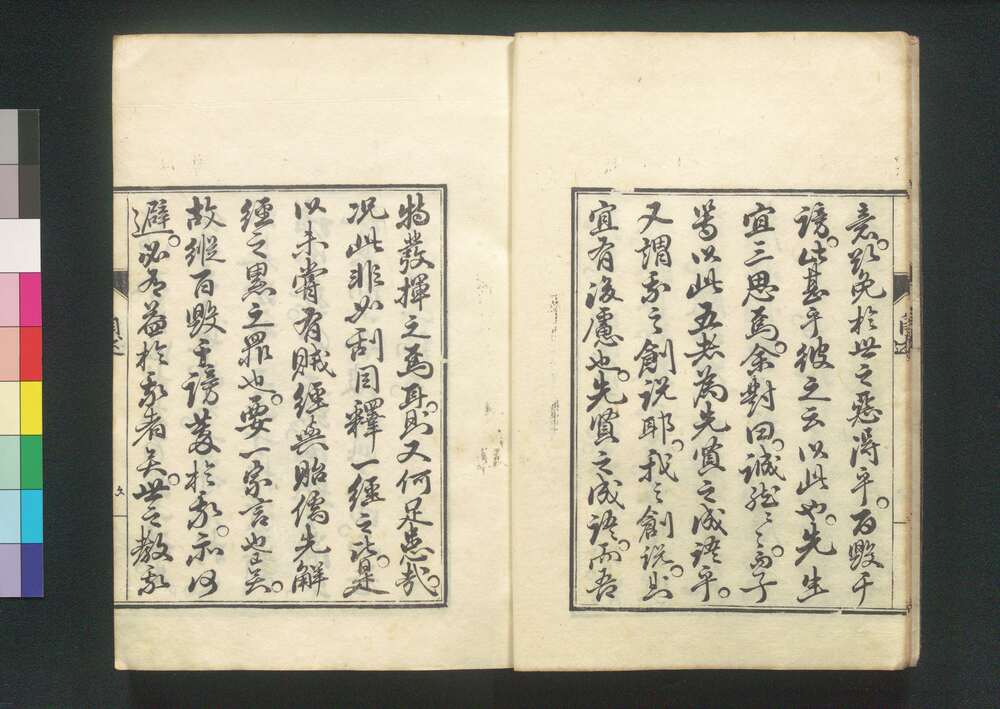 意。欲免於世之惡得乎。百毀千
謗。此甚乎彼之云以此也。先生
宜三思焉。余對曰。誠然々々。而子
嘗以此五者為先賢之成語乎。
又謂我之創說耶。我之創說。則
宜有後慮也。先賢之成語。而吾
特發揮之焉耳。則又何足患哉。
況此非如刮目釋一經之比。是
以未嘗有賊經與貽儒先解
經之累之罪也。要一家言也已矣。
故縱百毀千謗蓁於我。示何
避。必有益於我者矣。世之教我